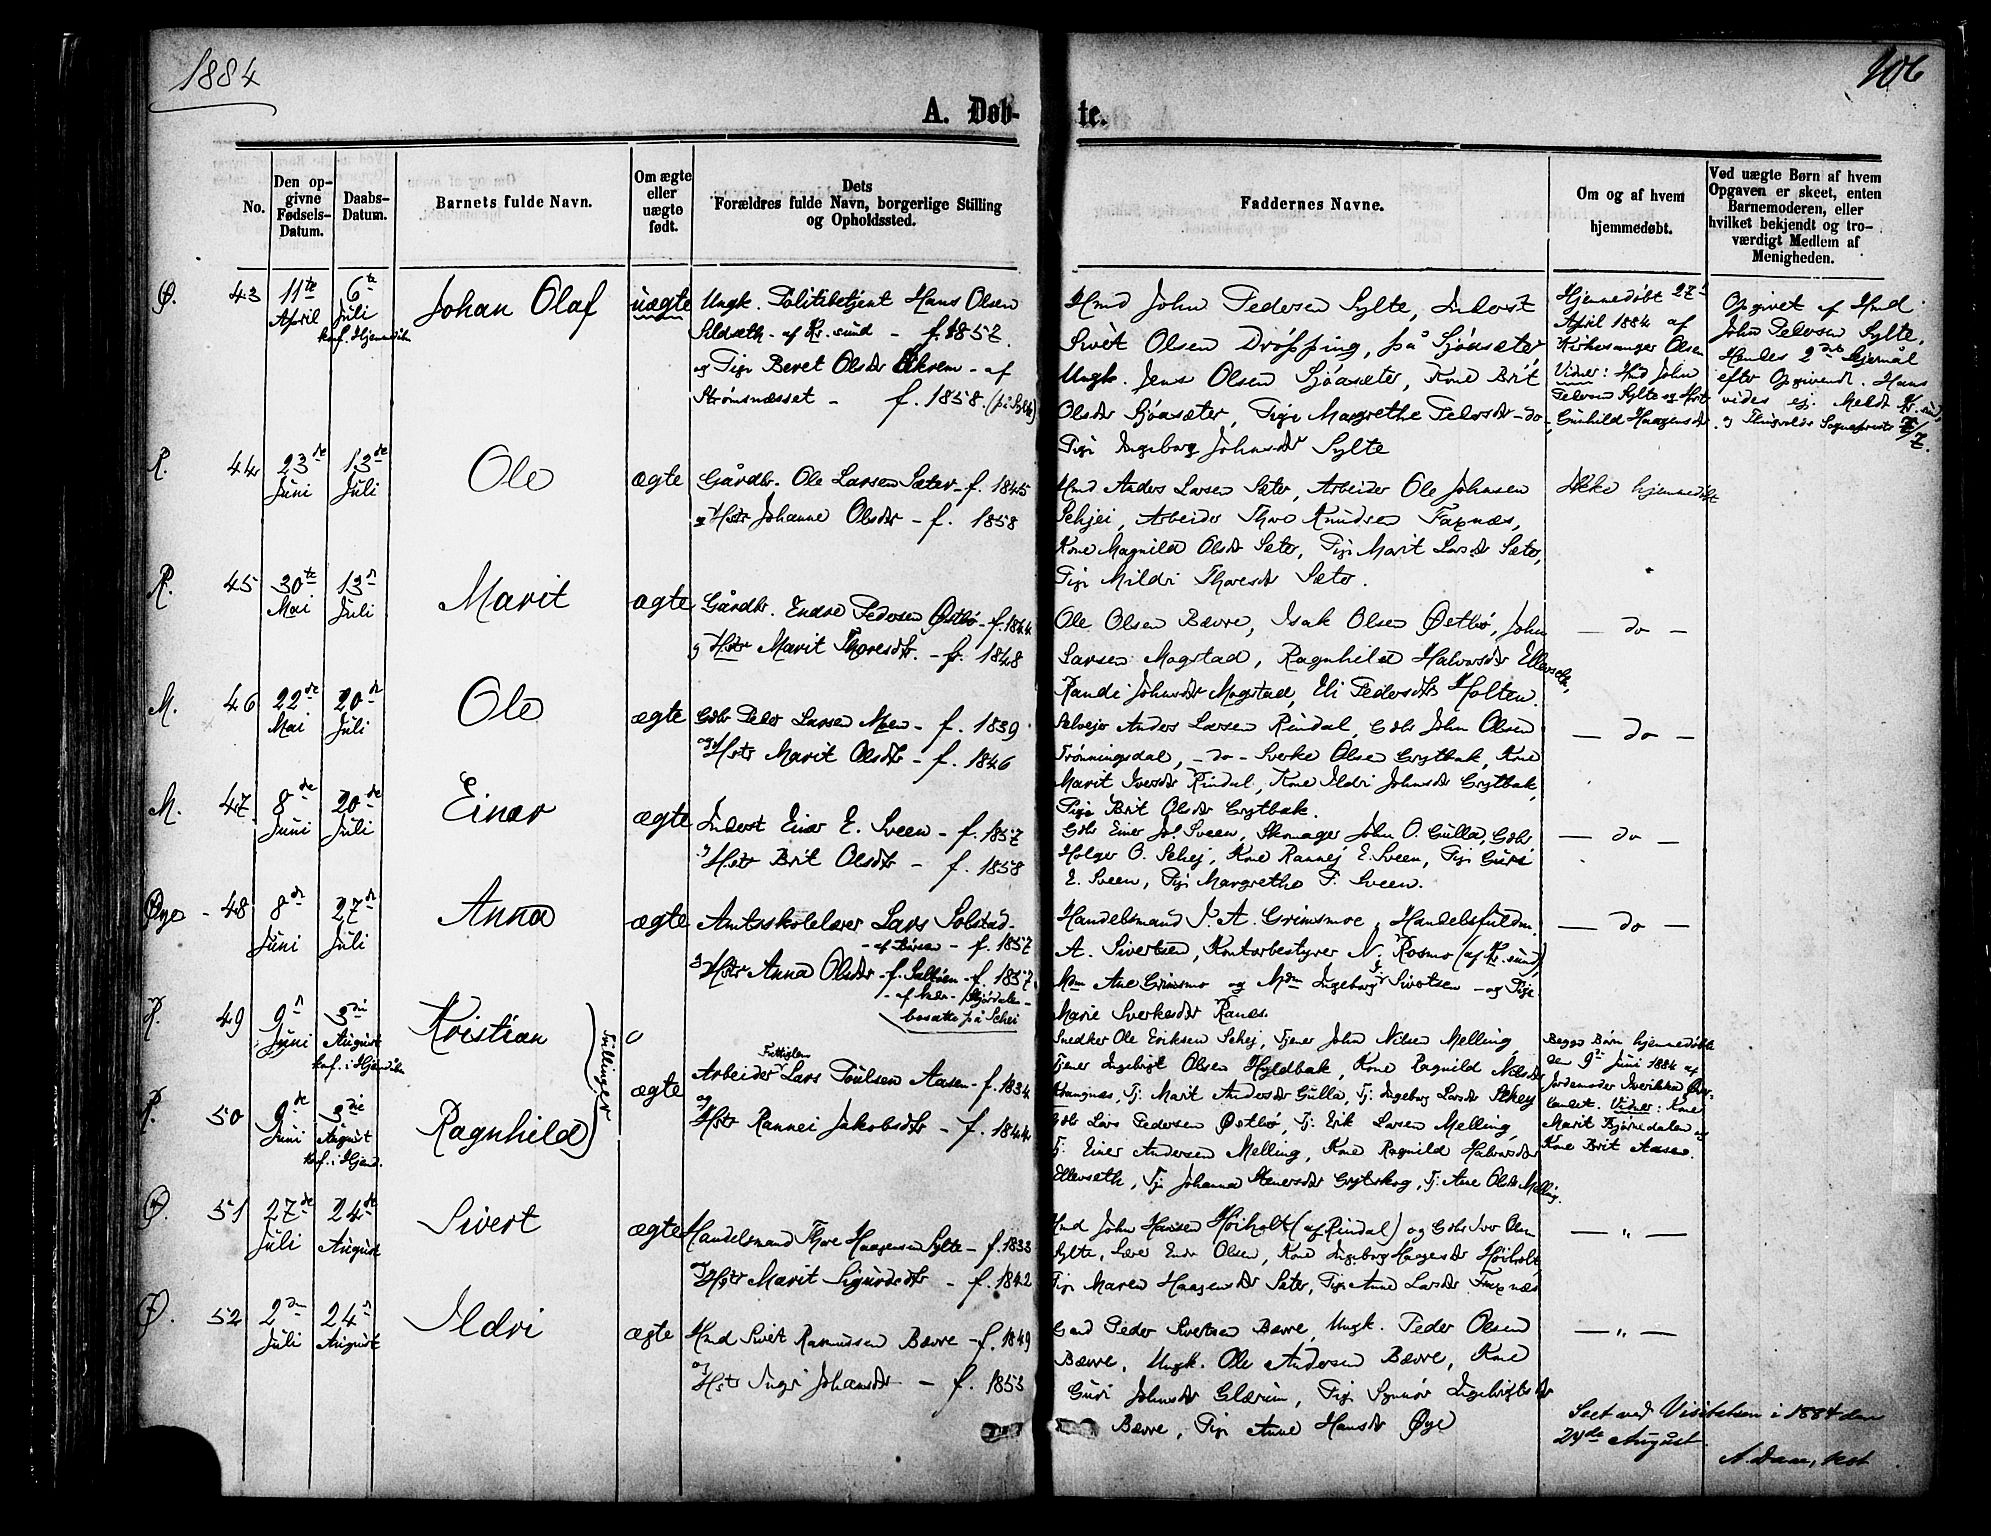 1884
106
A. Døb-
te.
No.
Den op-
givne
Fødsels-
Datum.
Daabs-
Datum.
Barnets fulde Navn.
Om ægte
eller
uægte
født.
Dets
Forældres fulde Navn, borgerlige Stilling
og Opholdssted.
Faddernes Navne.
Om og af hvem
hjemmedøbt.
Ved uægte Børn af hvem
Opgaven er skeet, enten
Barnemoderen, eller
hvilket bekjendt og tro-
værdigt Medlem af
Menigheden.
Ø. 43 11te April 6te Juli Johan Olaf uægte
Ungk. Politibetjent Hans Olsen
Sildsæth - af Kr. sund - f. 1857.
og Pige Beret Olsdtr Ekrem - af
Strømsnæsset - f. 1858. (på Sylte)
Hmd John Pedersen Sylte, Inderst
Sivert Olsen Drøpping, på Sjöasæter
Ungk. Jens Olsen Sjöasæter, Kone Brit
Olsdtr Sjöasæter, Pige Margrethe Pedersdtr - do -
Pige Ingeborg Johnsdtr Sylte
Hjemmedøbt 27de
April 1884 af
Kirkesanger Olsen
Vidner: Hmd John
Pedersen Sylte og Hstr
Gunhild Haagensdtr
Opgivet af Hmd
John Pedersen Sylte.
Hendes 2det Lejermål
efter Opgivende. Hans
vides ej. Meldt Kr. sund
R. 44 23de Juni 13de Juli Ole ægte
Gårdbr. Ole Larsen Sæter - f. 1845
og Hstr Johanne Olsdtr - f. 1858
Hmd Anders Larsen Sæter, Arbeider Ole Johnsen
Schjei, Arbeider Thore Knudsen Faxnæs,
Kone Magnild Olsdtr Sæter, Pige Marit Larsdtr Sæter,
Pige Mildri Thoresdtr Sæter.
Ikke hjemmedøbt
R. 45 30te Mai 13de Juli Marit ægte
Gårdbr. Endre Pedersen Østbø - f. 1844
og Hstr Marit Thoresdtr. - f. 1848
Ole Olsen Bævre, Isak Olsen Østbø, John
Larsen Mogstad, Ragnhild Halvorsdtr Ellevseth,
Randi Johnsdtr Mogstad, Eli Pedersdtr Holten.
— do —
M. 46 22de Mai 20de Juli Ole ægte
Gdbr Peder Larsen Moen - f. 1839
og Hstr Marit Olsdtr - f. 1846
Selvejer Anders Larsen Rindal, Gdbr John Olsen
Trönningsdal, - do - Sverke Olsen Grytbak, Kone
Marit Iversdtr Rindal, Kone Ildri Johnsdtr Grytbak,
Pige Brit Olsdtr Grytbak.
— do —
M. 47. 8de Juni 20de Juli Einar ægte
Inderst Einar E. Sveen - f. 1857
og Hstr Brit Olsdtr - f. 1858
Gdbr Einer Jo. Sveen, Skomager John O. Gulla, Gdbr
Holger O. Schej, Kone Rannej E. Sveen, Pige Guri
E. Sveen, Pige Margrethe P. Sveen.
— do —
Øye - 48 8de Juni 27de Juli Anna ægte
Amtsskolelærer Lars Solstad -
- af Børsen - f. 1857
og Hstr Anna Olsdtr - f. - f. 1857
bosatte på Schei
Handelsmand J. A. Grimsmoe, Handelsfuldm.
A. Sivertsen, Kontorbestyrer N. Rosmo (af Kr. sund),
Mdm Ane Grimsmo og Mdm Ingeborg Sivertsen - og Pige
Marie Sverkesdtr Ranes.
— do —
R. 49 9de Juni 3die August Kristian
konf. i Hjemdåb
R. 50 9de Juni 3die August Ragnhild
konf. i Hjemd.
Tvillinger
ægte
Arbeider Lars Poulsen Aasen - f. 1834
og Hstr Rannei Jakobsdtr - f. 1844
Snedker Ole Eriksen Schej, Tjener John Nilsen Melling,
Tjener Ingebrigt Olsen Hyldbak, Kone Ragnild Nilsdtr
Kvangnæs, Tj. Marit Andersdtr Gulla, Tj. Ingeborg Larsdtr Schej
Gdbr Lars Pedersen Østbø, Tj. Erik Larsen Melling,
Tj. Einer Andersen Melling, Kone Ragnild Halvorsdtr
Ellevseth, Pige Johanna Steenersdtr Grytskog, Tj. Ane Olsdtr Melling.
Begge Børn hjemmedøbte
den 9de Juni 1884 af
Jordemoder
Vidner: Kone
Marit Bjørnedalen og
Kone Brit Aasen.
Ø. 51 27de Juli 24de August Sivert ægte
Handelsmand Thore Haagensen Sylte - f. 1833
og Hstr Marit Sigurdsdtr - f. 1842
Hmd John Hansen Höiholt (af Rindal) og Gdbr Iver Olsen
Sylte, Lærer Endr Olsen, Kone Ingeborg Haagensdtr Höiholt,
Pige Maren Haagensdtr Sæter, Pige Anne Larsdtr Faxnæs
— „ —
Ø. 52 2den Juli 24de August Ildri ægte
Hmd Sivert Rasmussen Bævre - f. 1849
og Hstr Ingri Johansdtr - f. 1853
Gmd Peder Sivertsen Bævre, Ungk. Peder Olsen
Bævre, Ungk. Ole Andersen Bævre, Kone
Guri Johnsdtr Glærum, Pige Synnöv Ingebrigtsdtr
Bævre, Pige Anne Hansdtr Øye
— „ —
Seet ved Visitatsen i 1884 den
29de August.